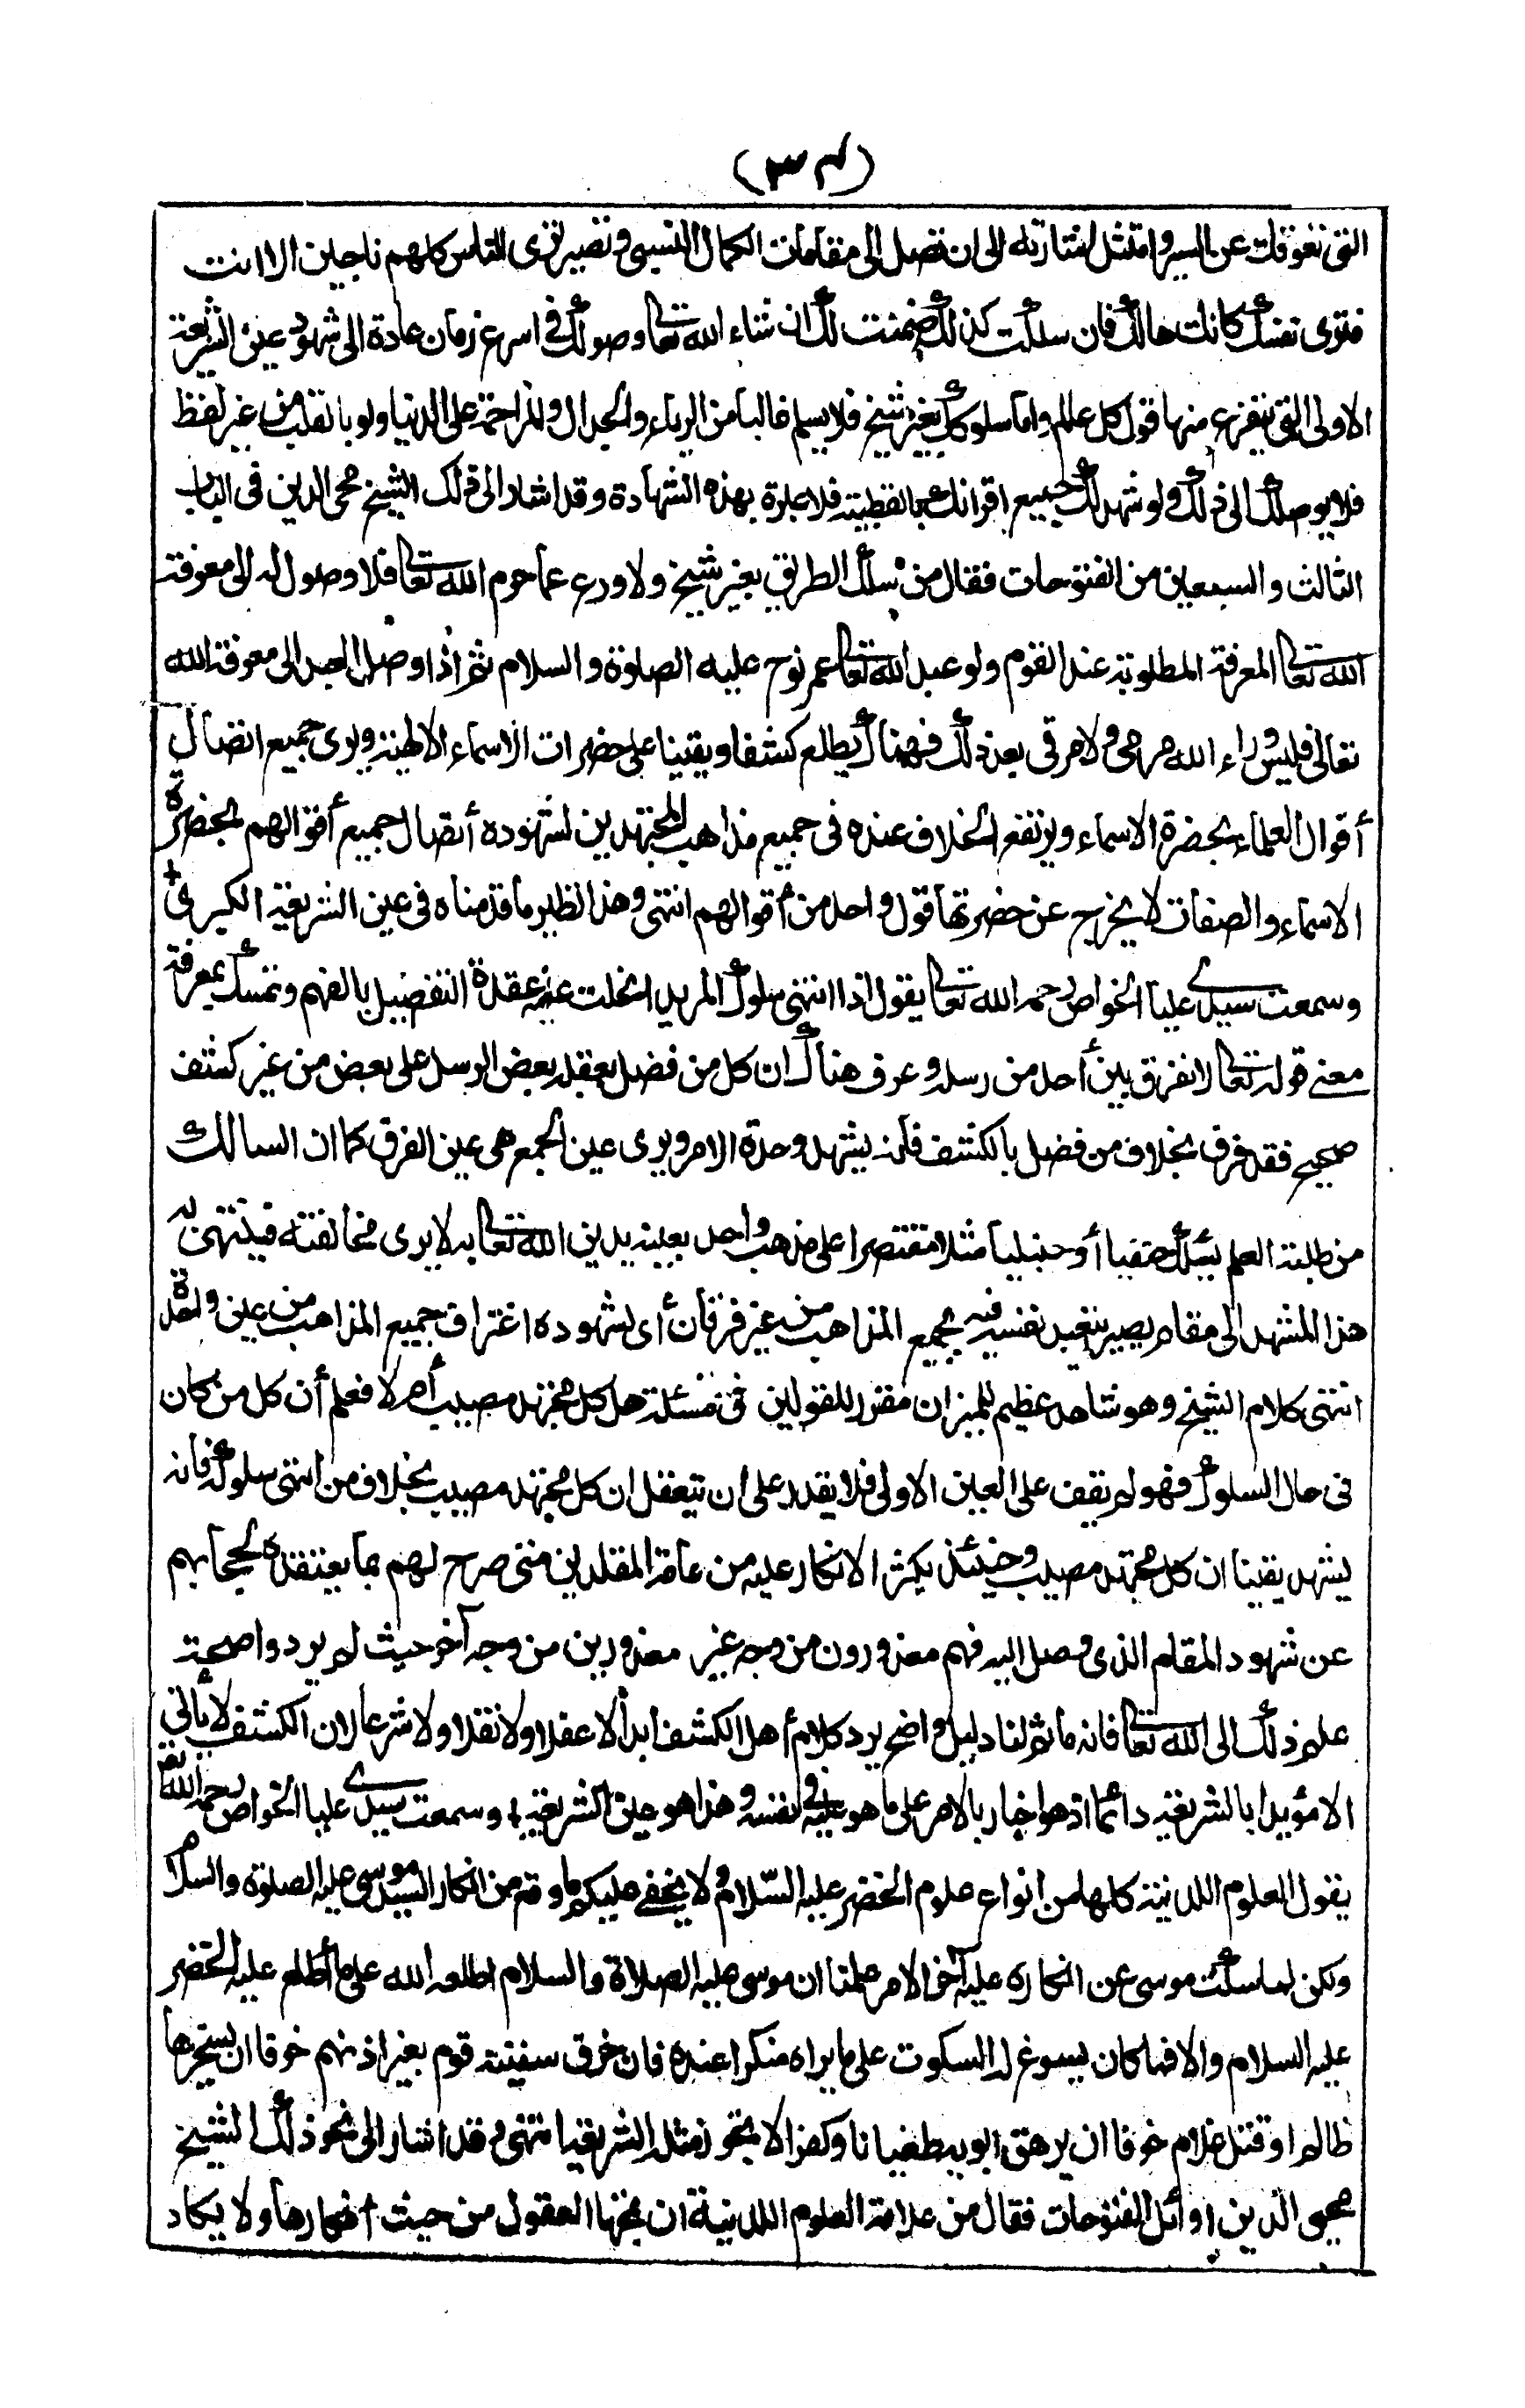 (٣٤)
التى تعوقك عن السير وامتثل اشارته الى ان تصل الى مقامات الكمال النسبى وتصير ترى الناس كلهم ناجين الا انت
فترى نفسك كانك هالك فان سلكت كذلك ضمنت لك ان شاء الله تعا وصولك فى اسرع زمان عادة الى شهود عين الشريعة
الاولى التى يتفرع منها قول كل عالم واما سلوكك بغير شيخ فلا يسلم غالبا من الرياء والجدال والمزاحمة على الدنيا ولو بالقلب من غير لفظ
فلا يوصلك الى ذلك ولو شهد لك جميع اقرانك بالقطبية فلا عبرة بهذه الشهادة وقد اشار الى ذلك الشيخ محى الدين فى الباب
الثالث والسبعين من الفتوحات فقال من سلك الطريق بغير شيخ ولا ورع عما حرم الله تعا فلا وصول له الى معرفة
الله تعا المعرفة المطلوبة عند القوم ولو عبد الله تعا عمر نوح عليه الصلوة والسلام ثم اذا وصل العبد الى معرفة الله
تعالى فليس وراء الله مرمى ولا مرقى بعد ذلك فهناك يطلع كشفا ويقينا على حضرات الاسماء الالهية ويرى جميع اتصال
أقوال العلماء بحضرة الاسماء ويرتفع الخلاف عنده فى جميع مذاهب المجتهدين لشهوده أتصال جميع أقوالهم بحضرة
الاسماء والصفات لا يخرج عن حضرتها قول واحد من أقوالهم انتهى وهذا نظير ما قدمناه فى عين الشريعة الكبرى
وسمعت سيدى عليا الخواص رحمه الله تعا يقول اذا انتهى سلوك المريد انحلت عنه عقدة التفضيل بالفهم وتمسك بمعرفة
معنى قوله تعا لا نفرق بين أحد من رسله وعرف هناك ان كل من فضل بعقله بعض الرسل على بعض من غير كشف
صحيح فقد فرق بخلاف من فضل بالكشف فانه يشهد وحدة الامر ويرى عين الجمع هى عين الفرق كما ان السالك
من طلبة العلم يسلك حنفيا أو حنبليا مثلا مقتصرا على مذهب واحد بعينه يدين الله تعا به لا يرى مخالفته فينتهى له
هذا المشهد الى مقام يصير يتعبد نفسه فيه بجميع المذاهب من غير فرقان أى لشهوده اغتراف جميع المذاهب من عين واحدة
انتهى كلام الشيخ وهو شاهد عظيم للميزان مقرر للقولين فى مسئلة هل كل مجتهد مصيب أم لا فعلم أن كل من كان
فى حال السلوك فهو لم يقف على العين الاولى فلا يقدر على ان يتعقل ان كل مجتهد مصيب بخلاف من انتهى سلوكه فانه
يشهد يقينا ان كل مجتهد مصيب وحينئذ يكثر الانكار عليه من عامة المقلدين متى صرح لهم بما يعتقده لحجابهم
عن شهود المقام الذى وصل اليه فهم معذورون من وجه غير معذورين من وجه آخر حيث لم يردوا صحة
علم ذلك الى الله تعا فانه ما ثم لنا دليل واضح يرد كلام أهل الكشف أبدا لا عقلا ولا نقلا ولا شرعا لان الكشف لا يأتى
الا مؤيدا بالشريعة دائما اذ هو اخبار بالامر على ما هو عليه فى نفسه وهذا هو عين الشريعة وسمعت سيدى عليا الخواص رحمه الله تعا
يقول العلوم اللدنية كلها من انواع علوم الخضر عليه السلام ولا يخفى عليكم ما وقع من انكار السيد موسى عليه الصلوة والسلام
ولكن لما سكت موسى عن انكاره عليه آخر الامر علمنا ان موسى عليه الصلاة والسلام اطلعه الله على ما أطلع عليه الخضر
عليه السلام والا فما كان يسوغ له السكوت على ما يراه منكرا عنده فان خرق سفينة قوم بغير اذنهم خوفا ان يسخرها
ظالم او قتل غلام خوفا ان يرهق ابويه طغيانا وكفرا لا يجوز مثله فى شريعة انتهى وقد اشار الى نحو ذلك الشيخ
محيى الدين اوائل الفتوحات فقال من علامة العلوم اللدنية ان تمجها العقول من حيث أفكارها ولا يكاد